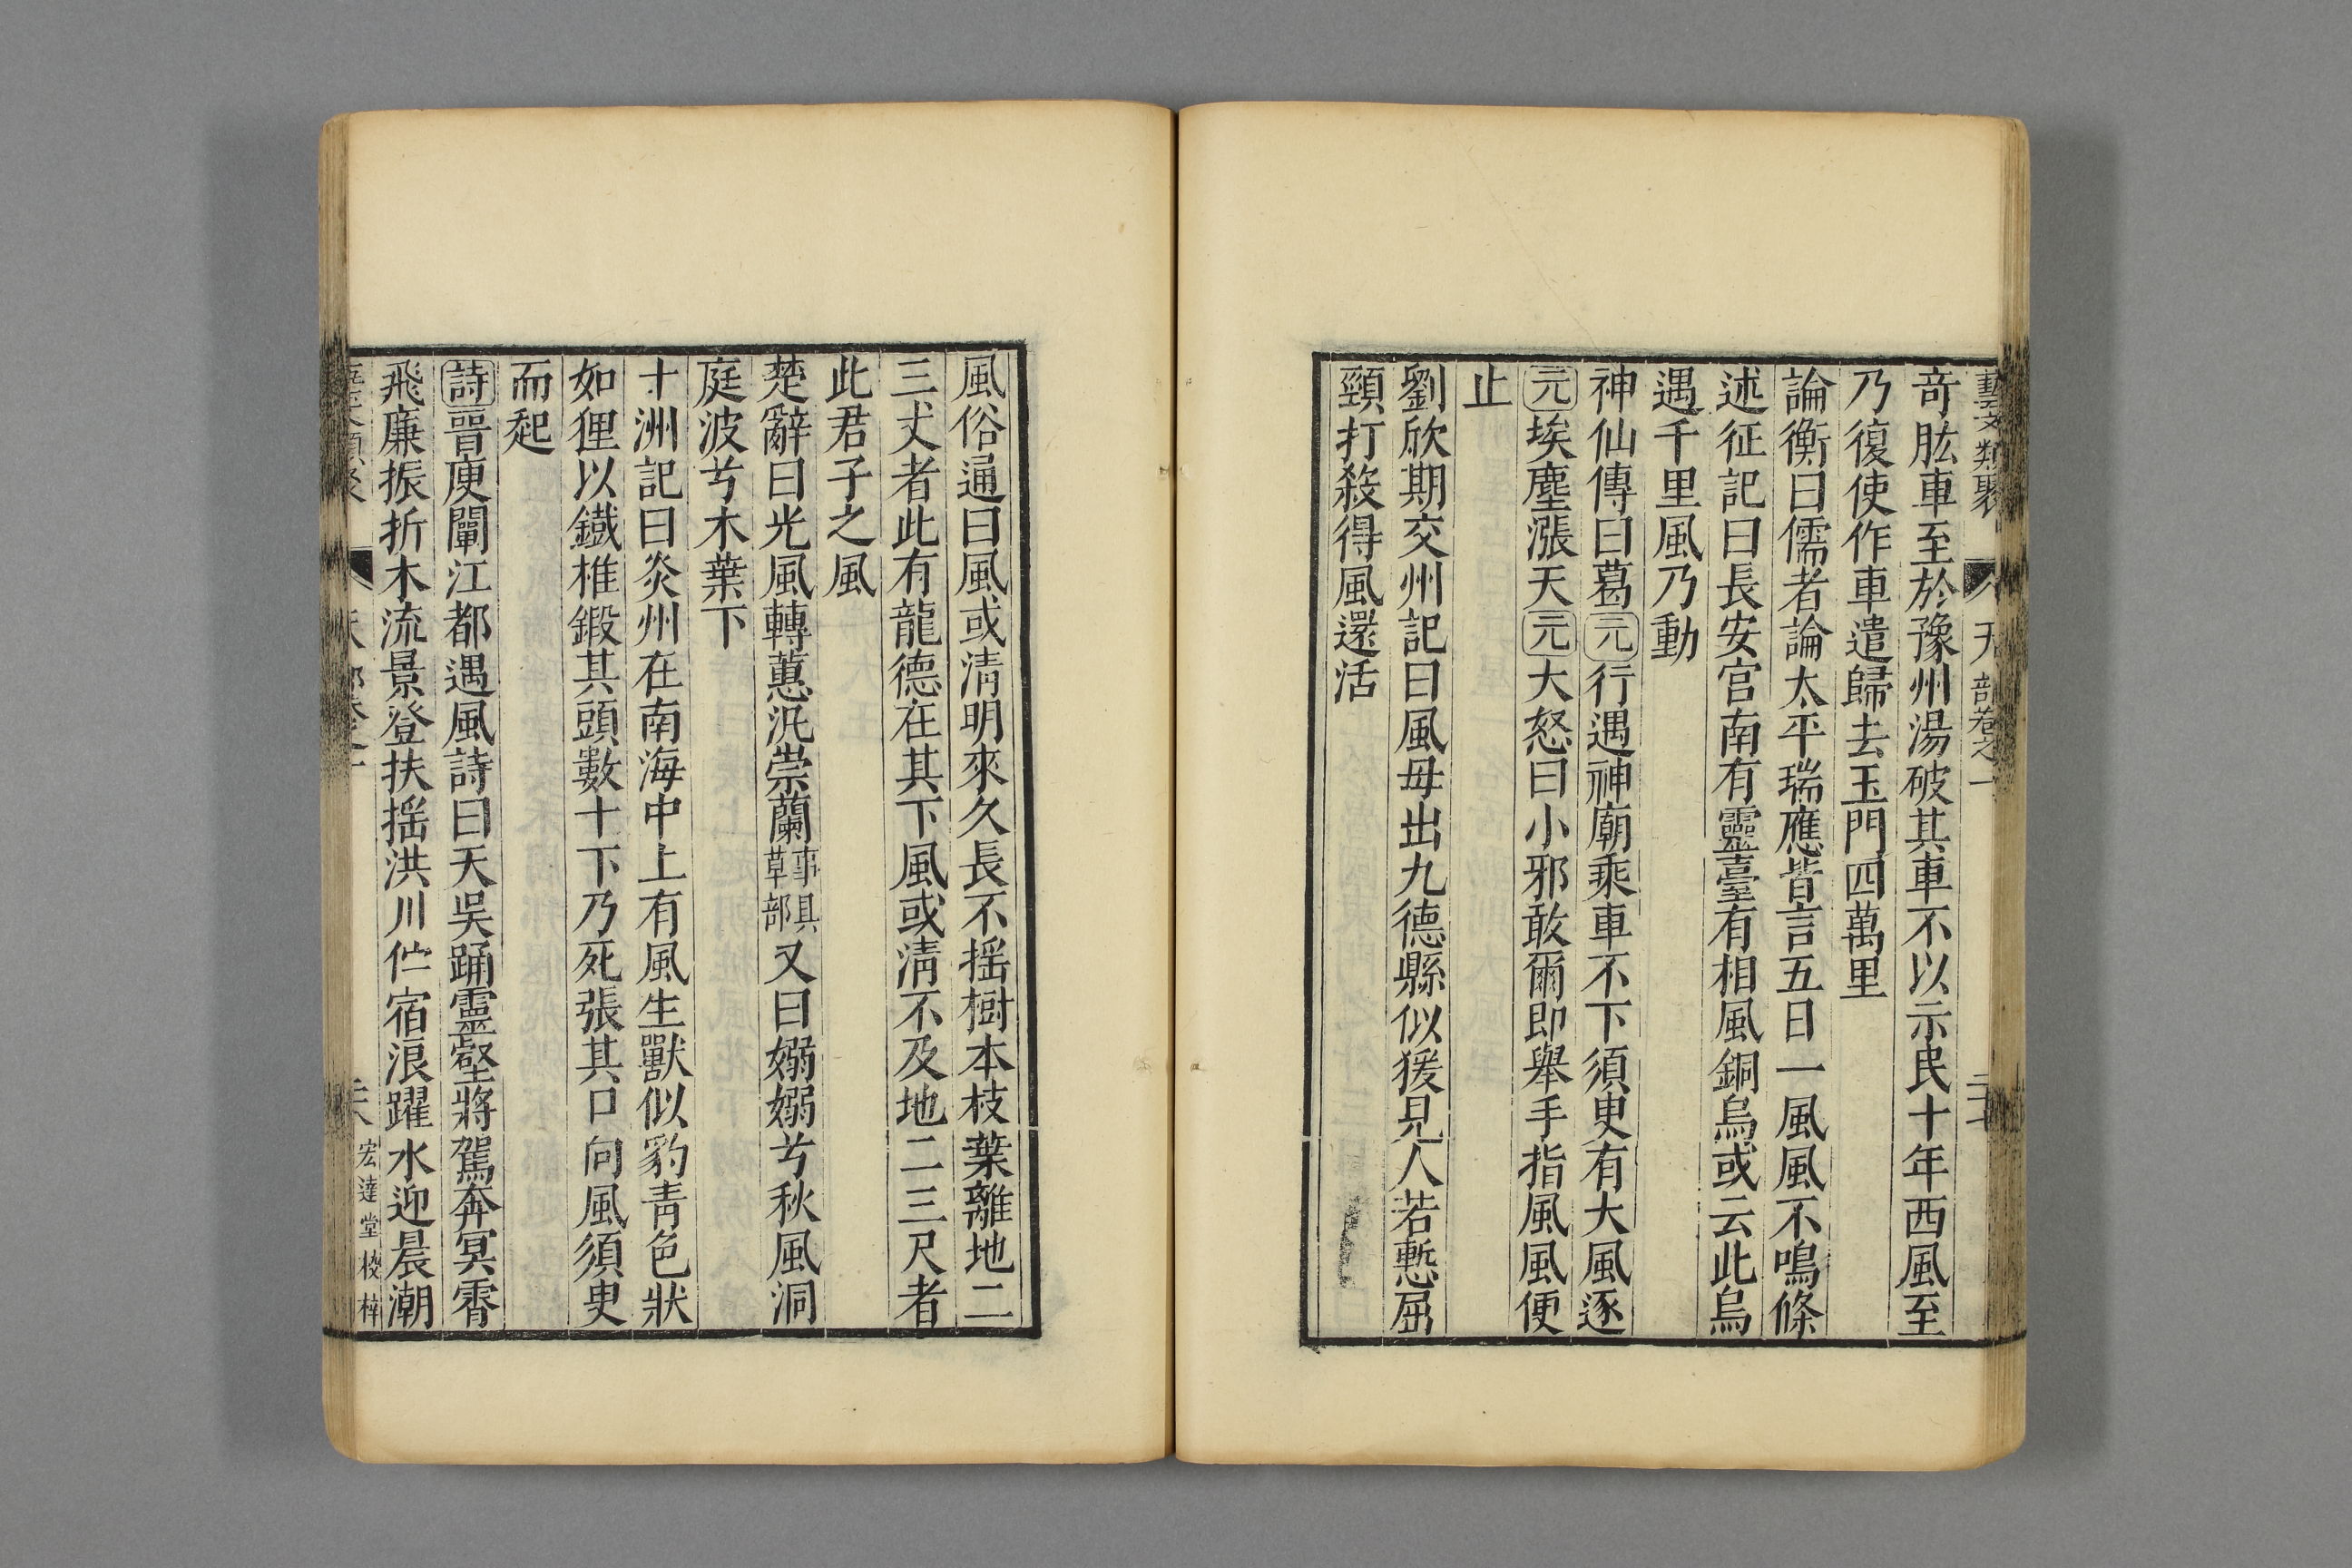 藝文類聚 天部卷之一 二十七
奇肱車至於豫州湯破其車不以示民十年西風至
乃復使作車遣歸去玉門四萬里
論衡曰儒者論太平瑞應皆言五日一風風不鳴條
述征記曰長安宫南有靈臺有相風銅烏或云此烏
遇千里風乃動
神仙傳曰葛元行遇神廟乘車不下須臾有大風逐
元埃塵漲天元大怒曰小邪敢爾即舉手指風風便
止
劉欣期交州記曰風母出九德縣似猨見人若慙屈
頸打殺得風還活
風俗通曰風或清明來久長不揺樹本枝葉離地二
三丈者此有龍德在其下風或清不及地二三尺者
此君子之風
楚辭曰光風轉蕙汎崇蘭事具草部又曰嫋嫋兮秋風洞
庭波兮木葉下
十洲記曰炎州在南海中上有風生獸似豹青色狀
如狸以鐵椎鍛其頭數十下乃死張其口向風須臾
而起
詩晉庾闡江都遇風詩曰天吳踊靈壑將駕奔冥霄
飛廉振折木流景登扶揺洪川伫宿浪躍水迎晨潮
宏達堂校梓